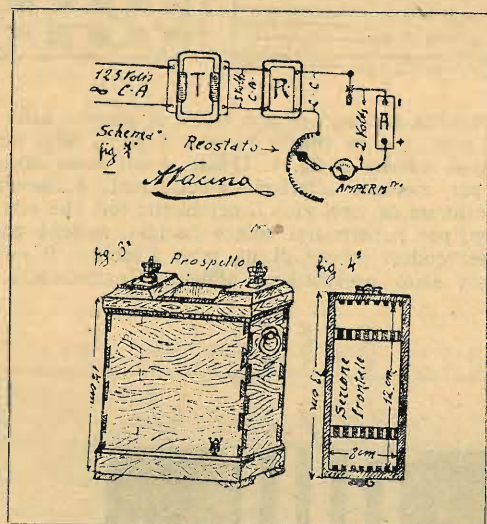 125 Volts
∞ C-A
T.
5 Volts
C-A
R.
C-C
2 Volts
A
+
Schema
fig 2ª
Reostato →
AMPERM.tro
fig. 3ª Prospetto
15 cm
fig 4ª
Sezione
frontale
12 cm
8 cm